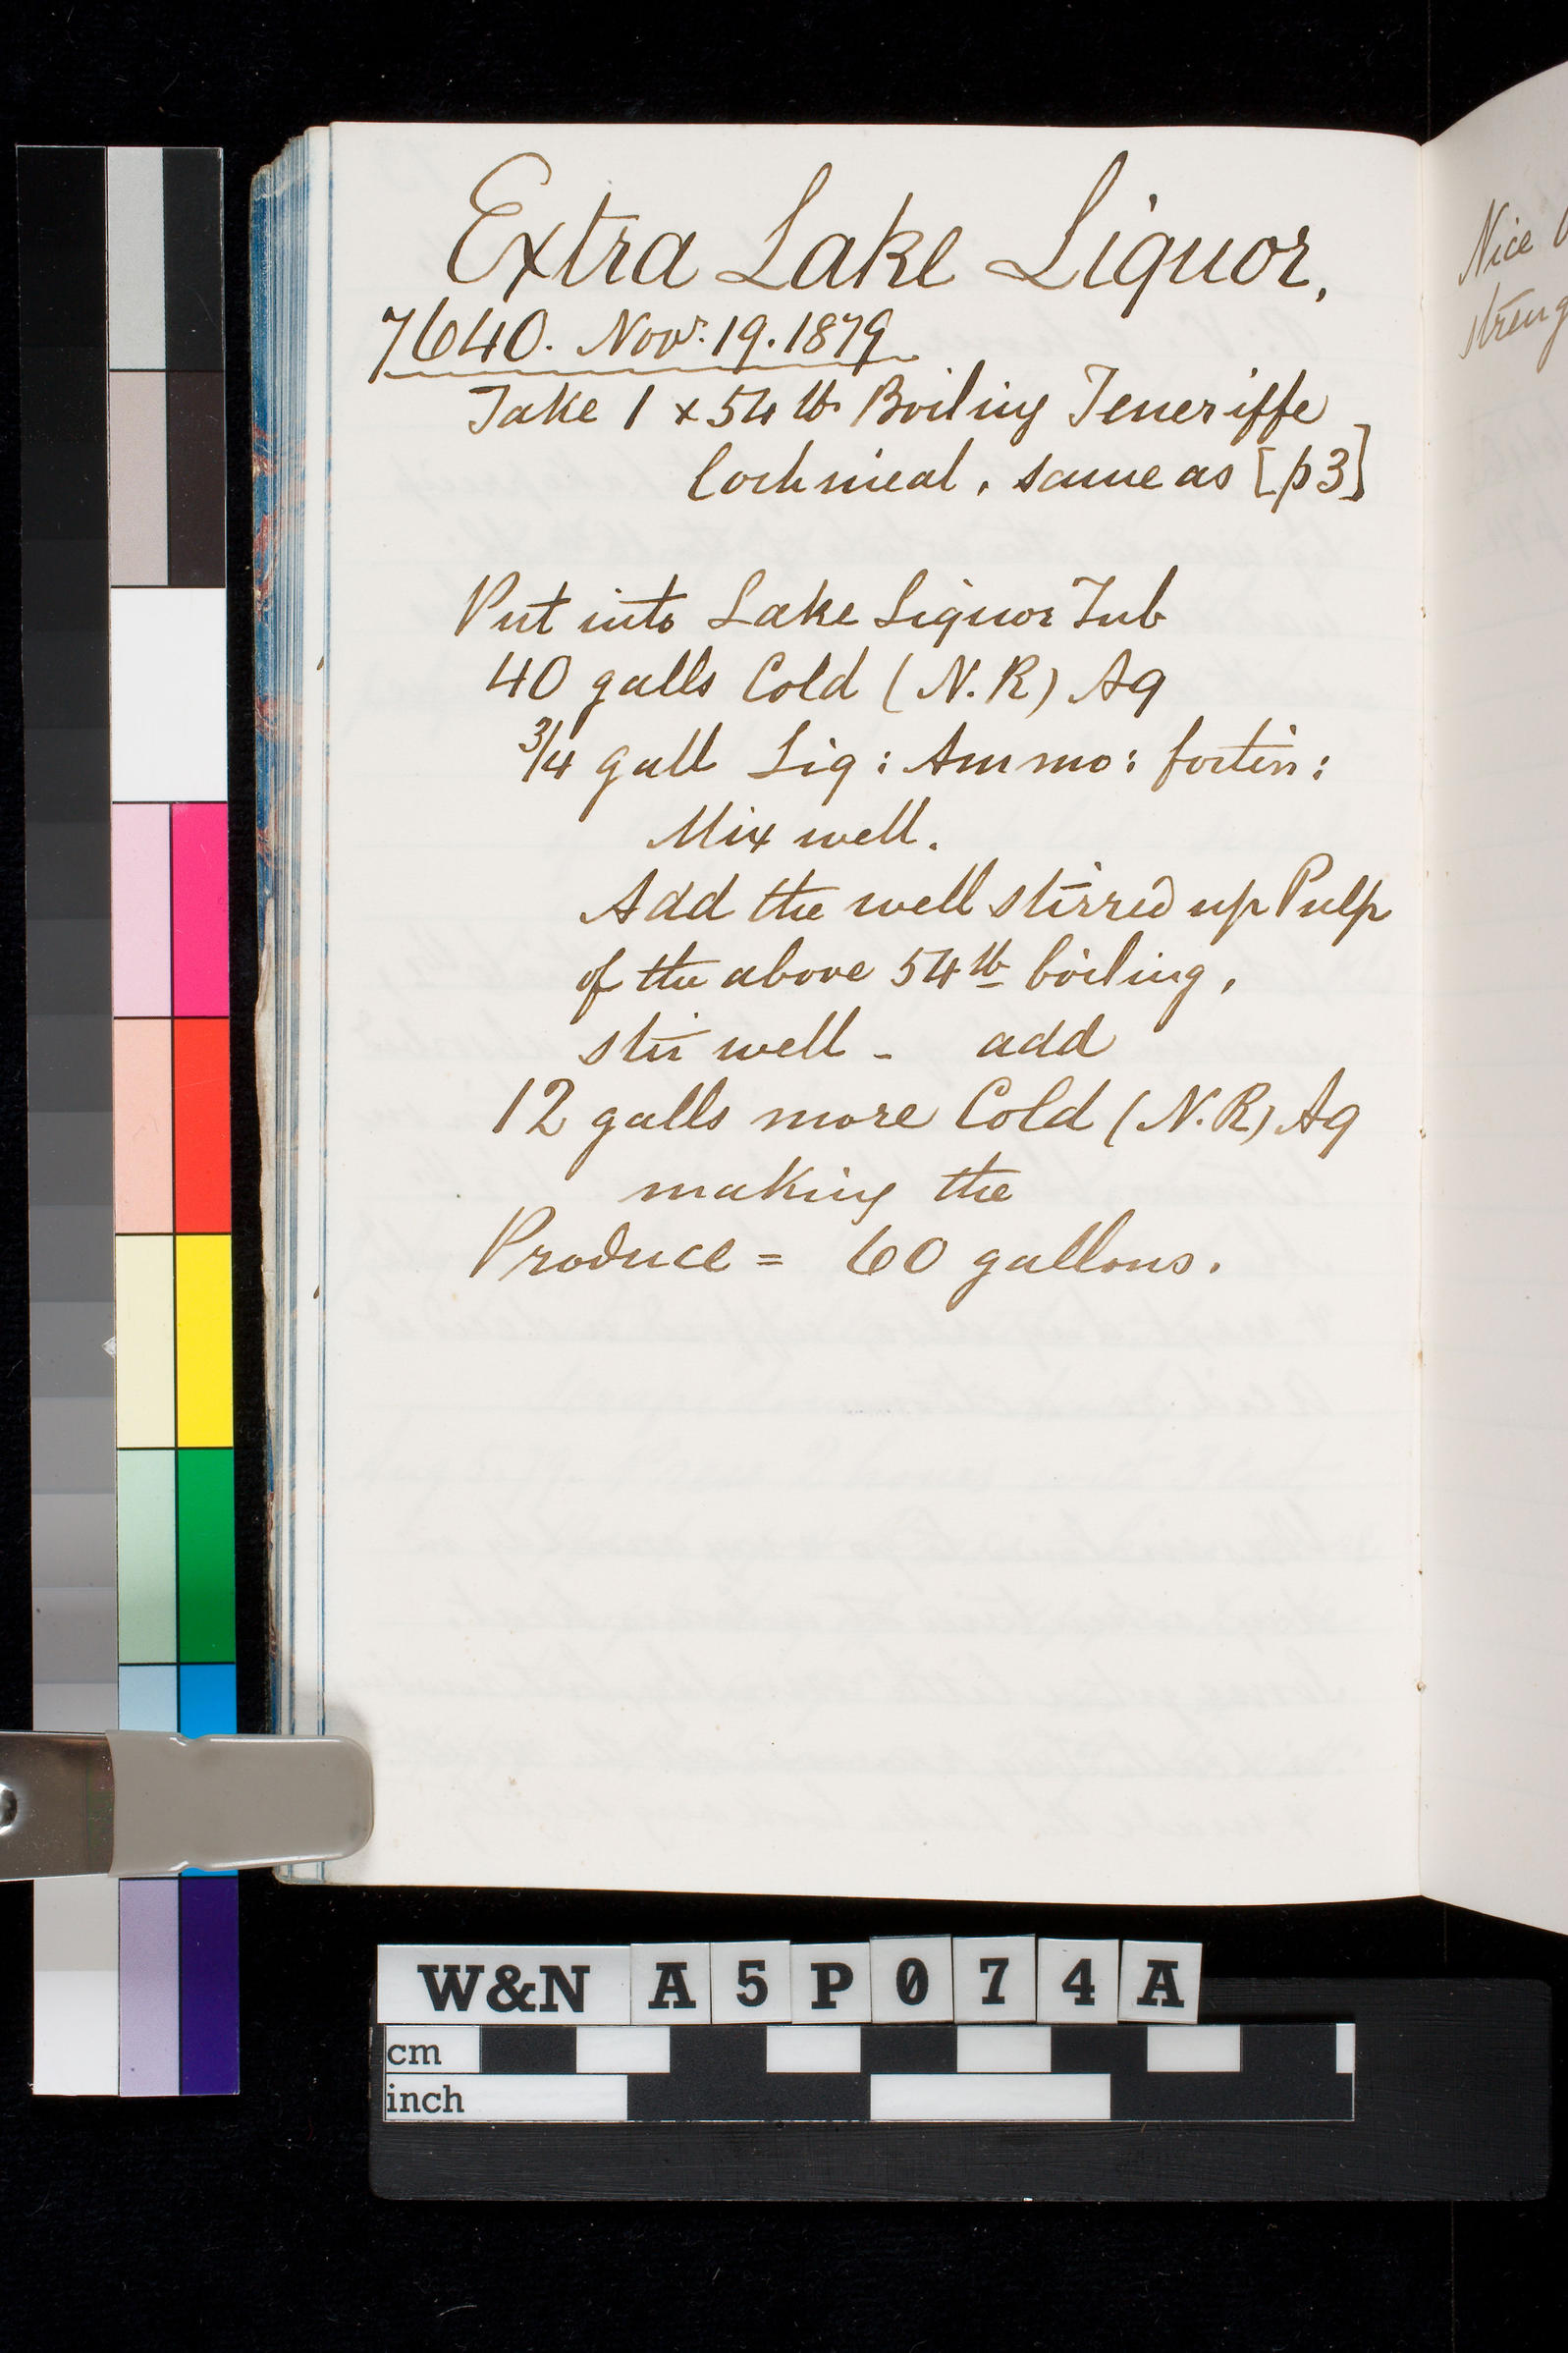 Extra Lake Liquor.
7640. Novr. 19. 1879
Take 1 x 54 lb Boiling Teneriffe
Cochineal, same as [p3]
Put into Lake Liquor Tub
40 galls Cold (N.R) Aq
3/4 gall Liq: Ammo: fortis:
Mix well.
Add the well stirred up Pulp
of the above 54 lb boiling,
stir well - add
12 galls more Cold (N.R) Aq
making the
Produce = 60 gallons.
Nice
W&N A5P074A
cm
inch